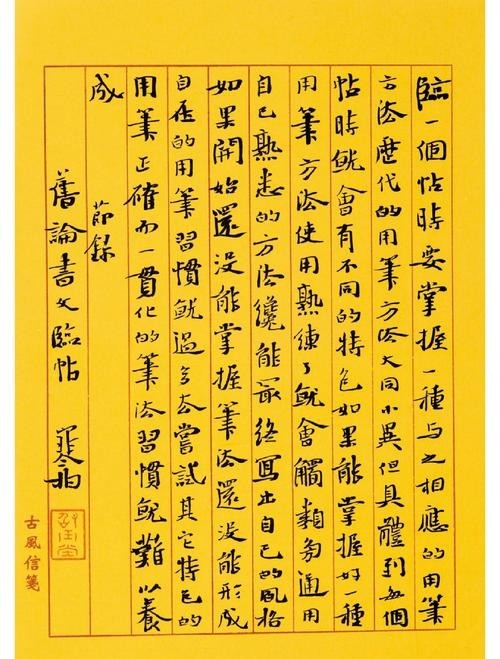 臨一個帖時要掌握一種与之相應的用筆
方法歷代的用筆方法大同小異但具體到每個
帖時就會有不同的特色如果能掌握好一種
用筆方法使用熟練了就會觸類旁通用
自己熟悉的方法纔能最終寫出自己的風格
如果開始還没能掌握筆法還没能形成
自在的用筆習慣就過多去嘗試其它特色的
用筆正確而一貫化的筆法習慣就難以養
成 節錄
舊論書文臨帖
古風信箋